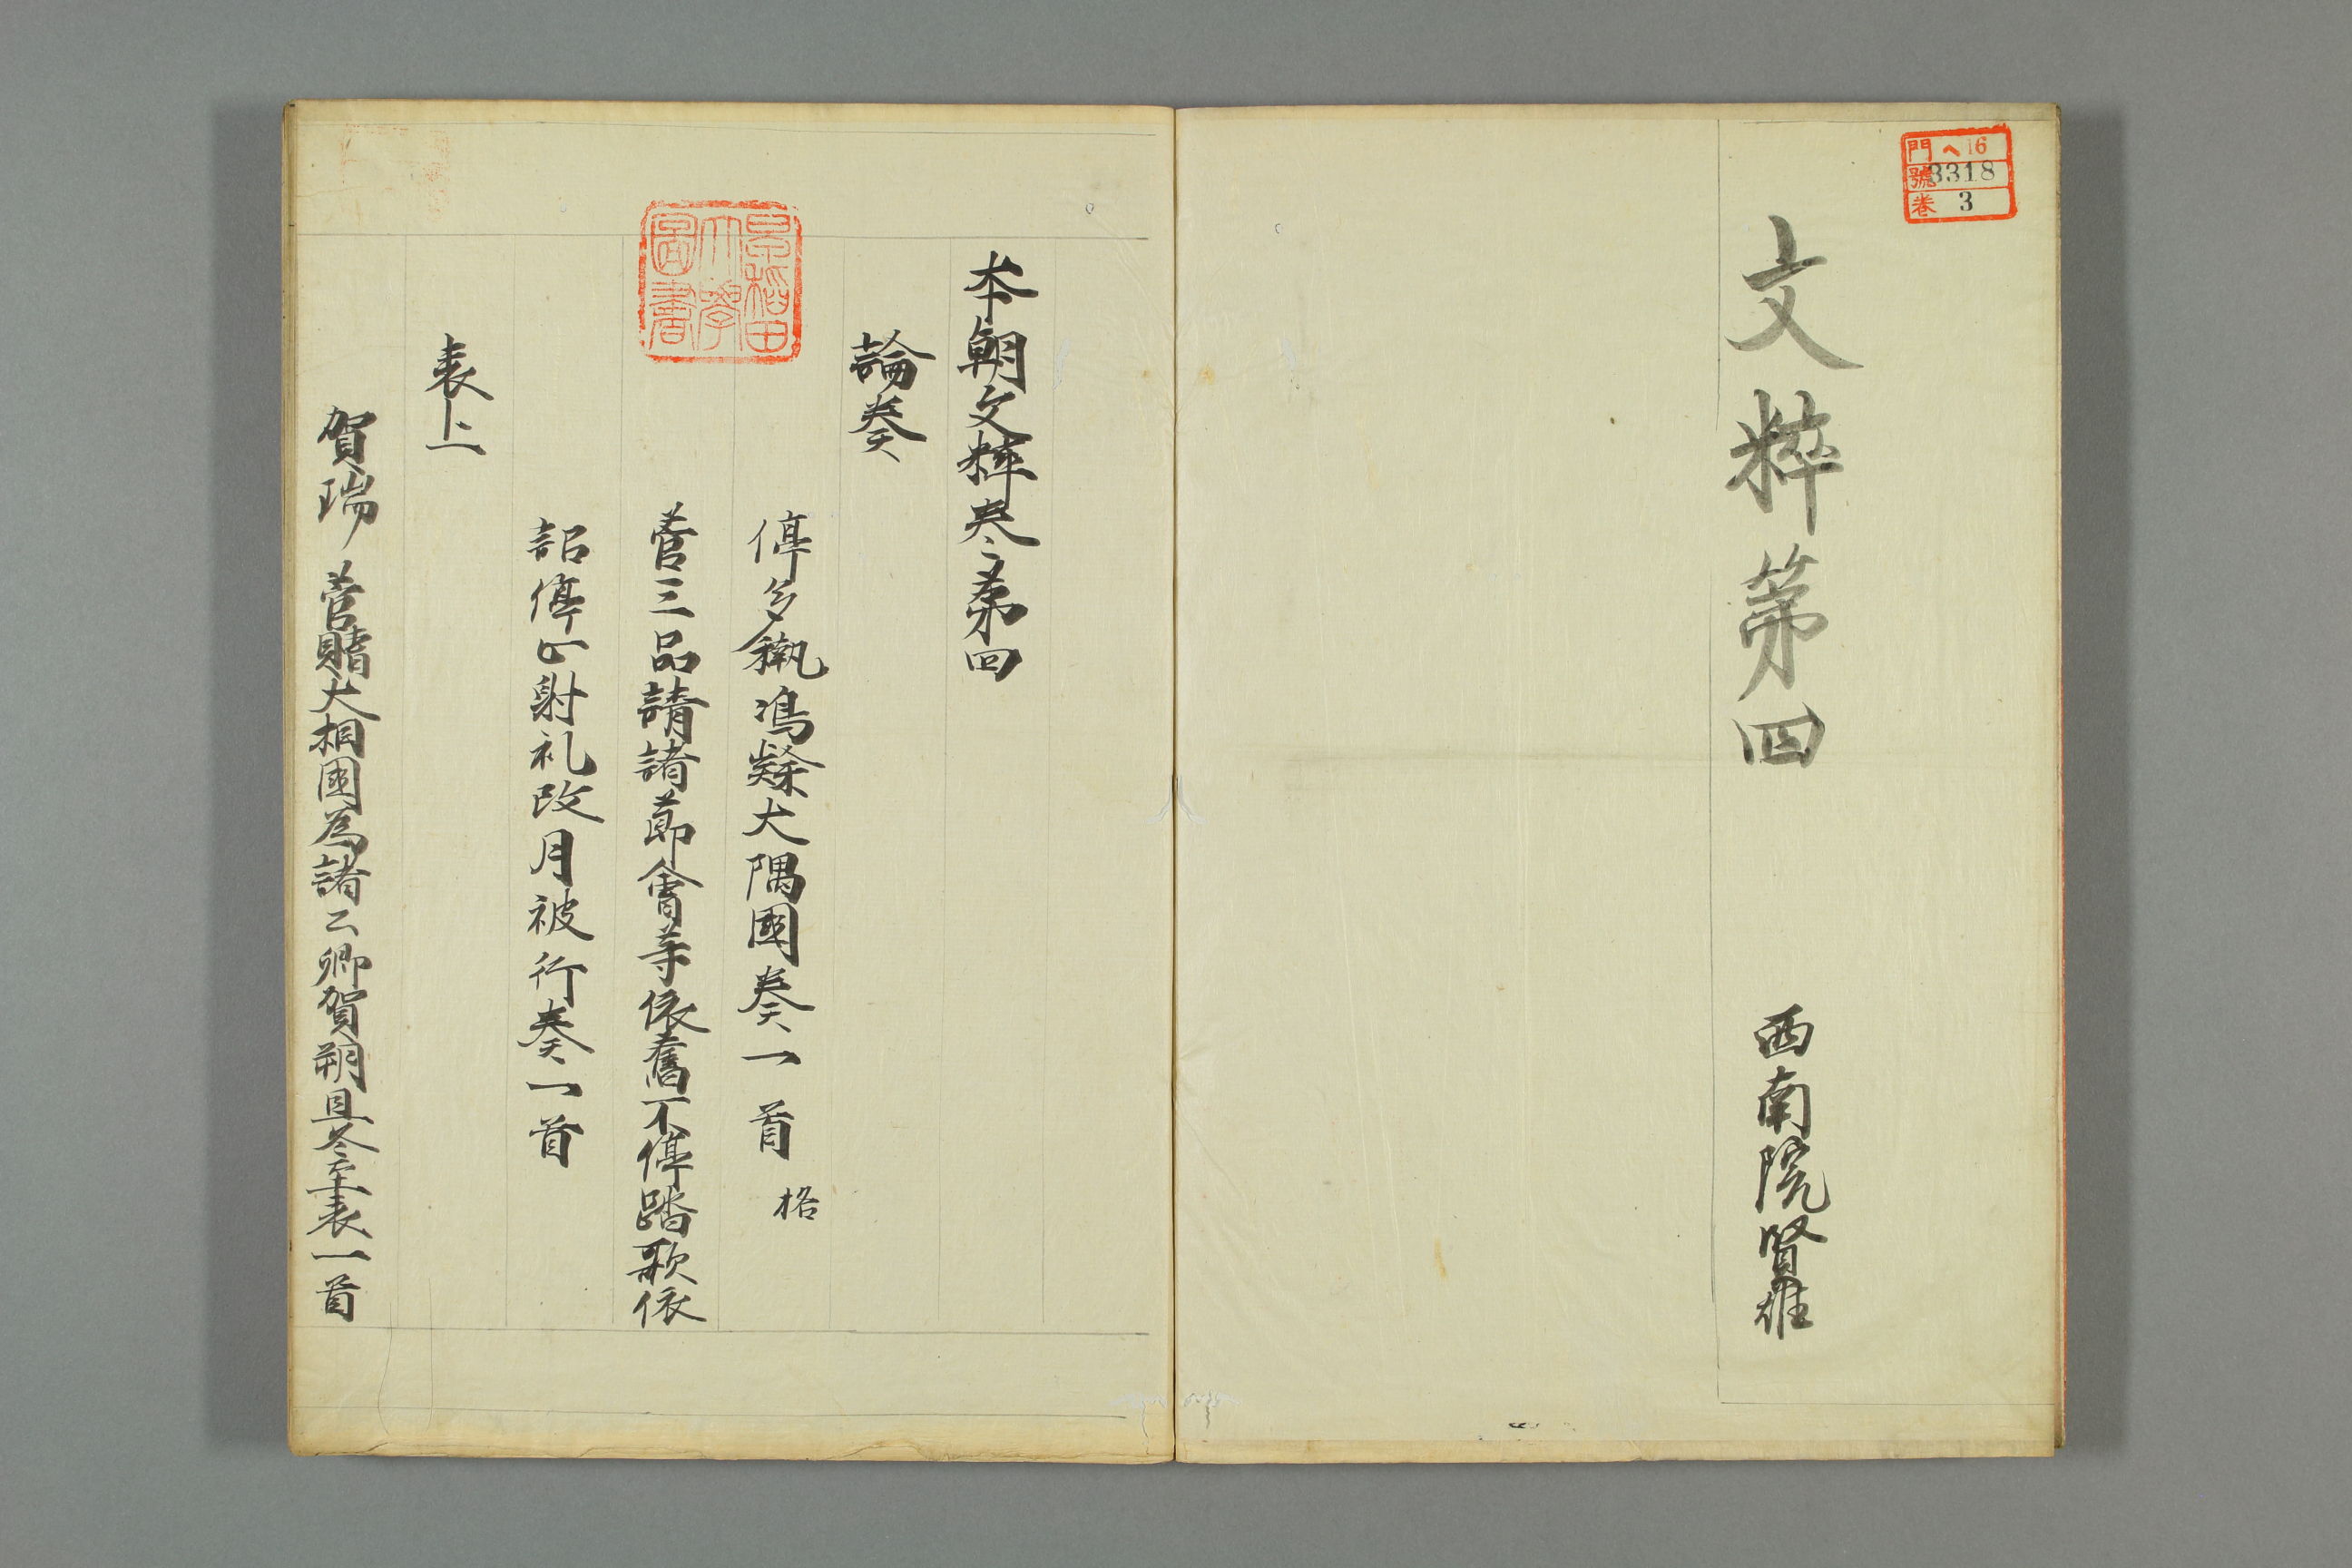 門 ヘ16
號 3318
卷 3
文粹第四
西南院賢雄
本朝文粹卷第四
論奏
停多褹嶋隷大隅國奏一首 格
菅三品請諸節會等依舊不停踏歌依
詔停止射礼改月被行奏一首
表上
賀瑞 菅贈大相國為諸公卿賀朔旦冬至表一首
早稻田大學圖書